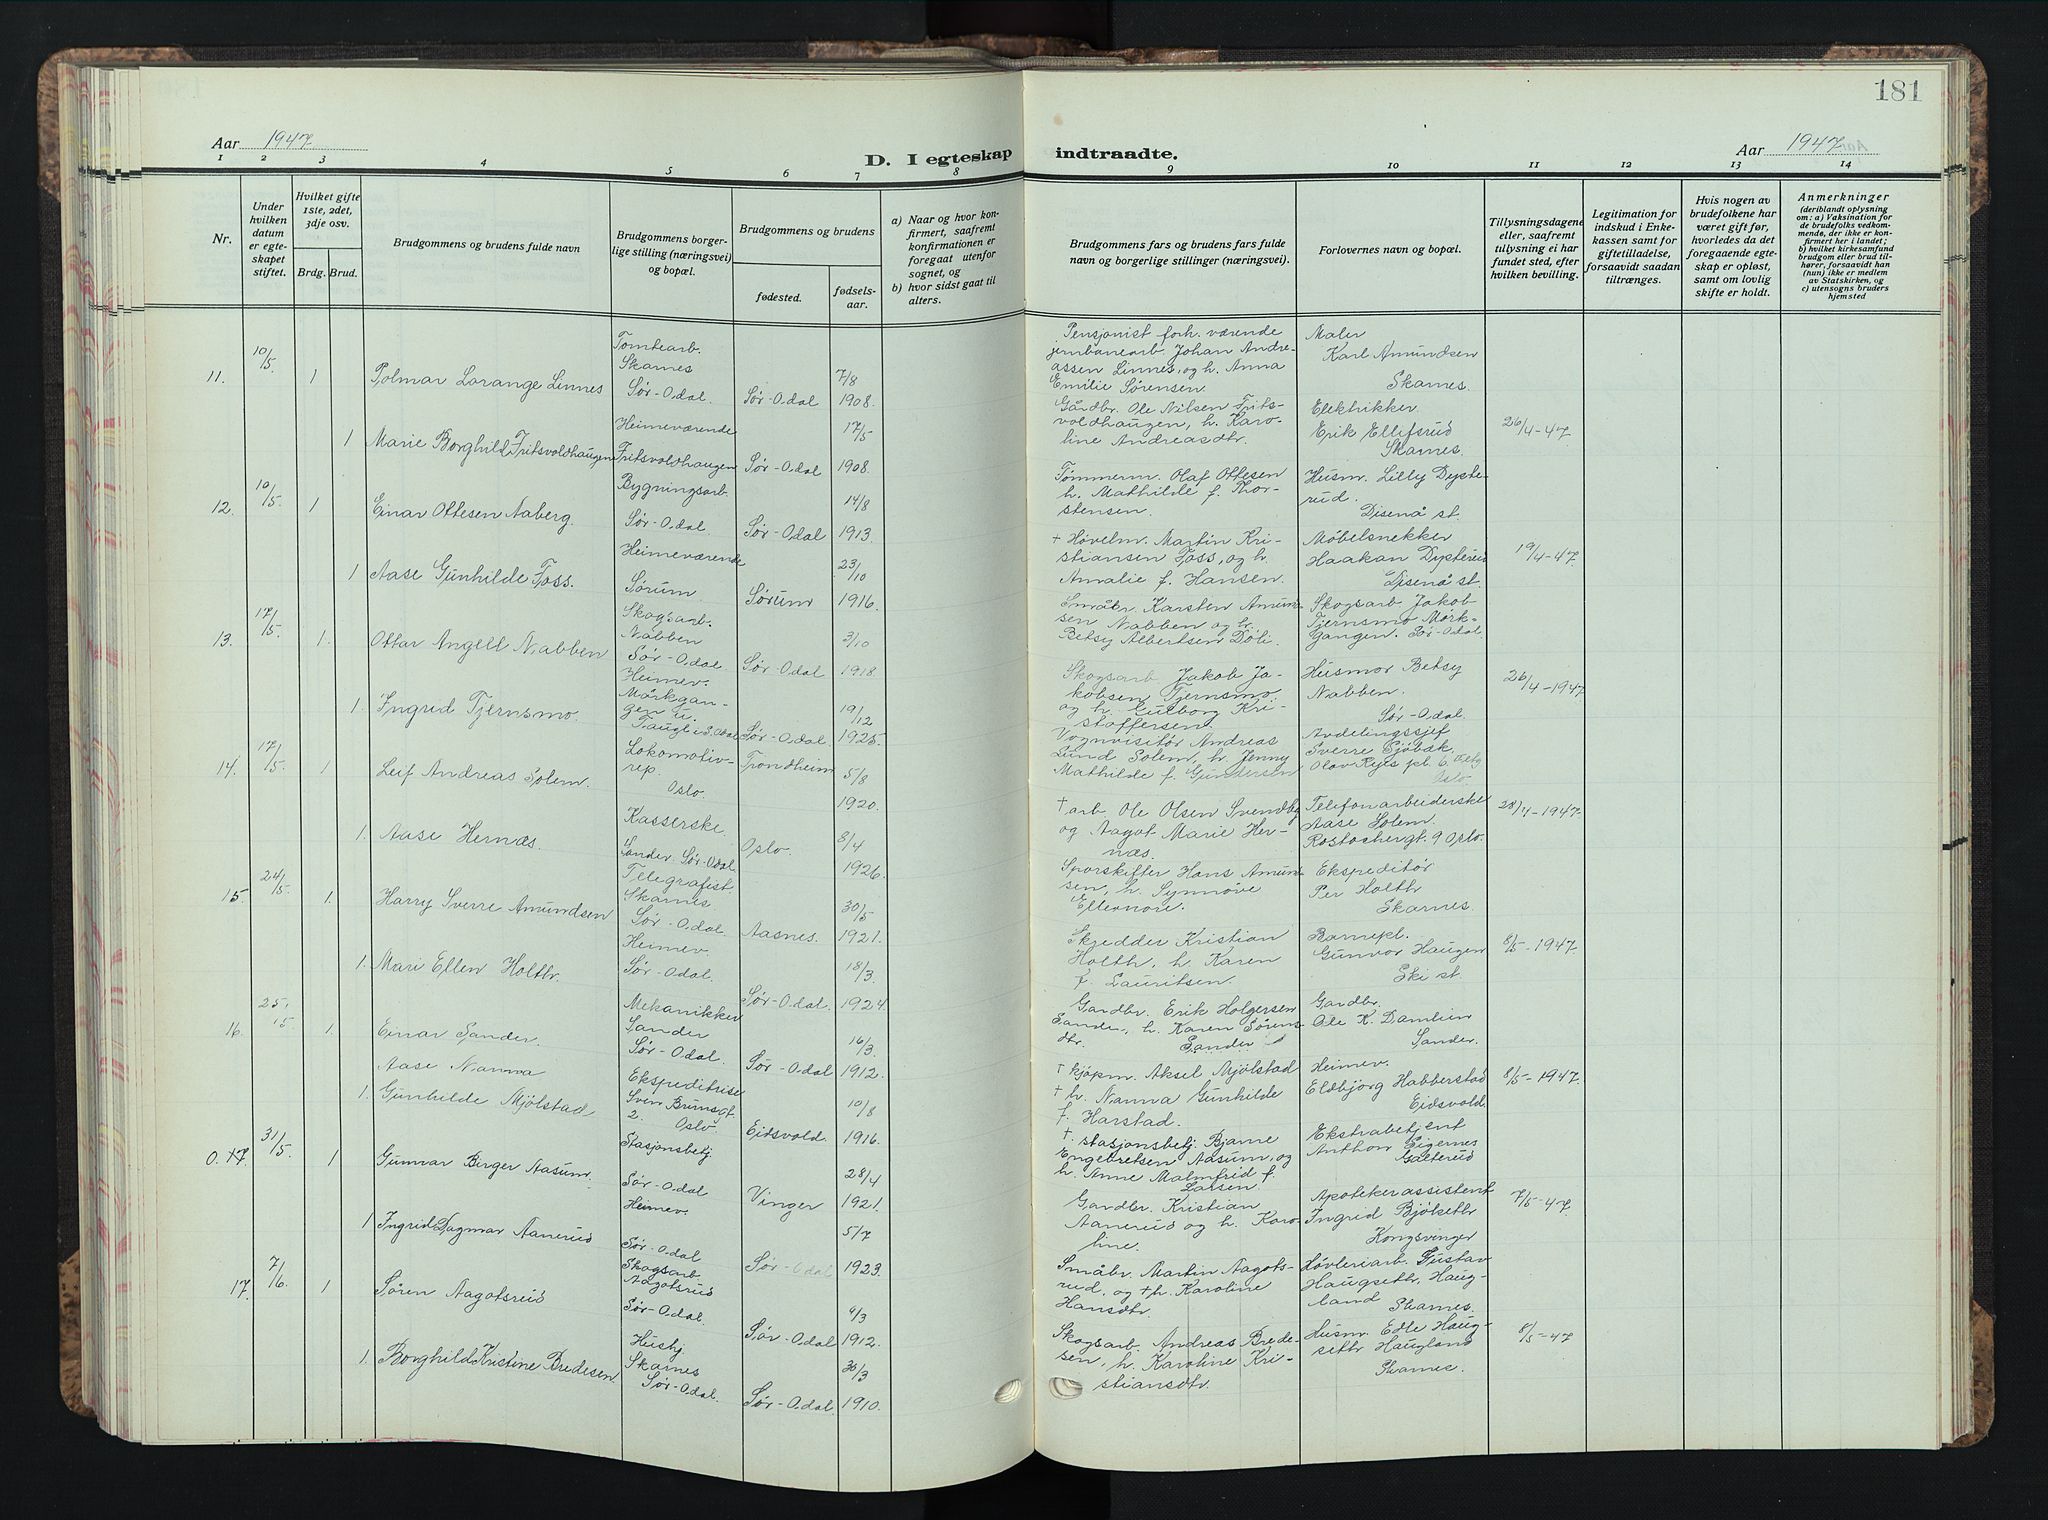 181
Aar 1947
D. I egteskap indtraadte.
Aar 1947
1 2 3 4 5 6 7 8 9 10 11 12 13 14
Nr.
Under hvilken datum er egteskapet stiftet.
Hvilket gifte 1ste, 2det, 3dje osv.
Brdg. Brud.
Brudgommens og brudens fulde navn
Brudgommens borgerlige stilling (næringsvei) og bopæl.
Brudgommens og brudens
fødested.
fødselsaar.
a) Naar og hvor konfirmert, saafremt konfirmationen er foregaat utenfor sognet, og
b) hvor sidst gaat til alters.
Brudgommens fars og brudens fars fulde navn og borgerlige stillinger (næringsvei).
Forlovernes navn og bopæl.
Tillysningsdagene eller, saafremt tillysning ei har fundet sted, efter hvilken bevilling.
Legitimation for indskud i Enkekassen samt for giftetilladelse, forsaavidt saadan tiltrænges.
Hvis nogen av brudefolkene har været gift før, hvorledes da det foregaaende egteskap er opløst, samt om lovlig skifte er holdt.
Anmerkninger
(deriblandt oplysning om: a) Vaksination for de brudefolks vedkommende, der ikke er konfirmert her i landet; b) hvilket kirkesamfund brudgom eller brud tilhører, forsaavidt han (hun) ikke er medlem av Statskirken, og c) utensogns bruders hjemsted
11. 10/5 1 Polmar Lorange Linnes
Tomtearb.
Skarnes
Sør-Odal.
Sør-Odal
7/8
1908.
Pensjonist forh. værende
jernbanearb. Johan Andre-
assen Linnes, og h. Anna
Emilie Sørensen
Maler
Karl Amundsen
Skarnes.
1 Marie Borghild Fritsvoldhaugen
Heimeværende
Fritsvoldhaugen
Sør-Odal
17/5
1908.
Gårdbr. Ole Nilsen Frits-
voldhaugen, h. Karo-
line Andreasdtr.
Elektrikker
Erik Ellefsrud
Skarnes.
26/4-47
12. 10/5 1 Einar Ottesen Aaberg.
Bygningsarb.
Sør-Odal
Sør-Odal
14/8
1913.
Tømmerm. Olaf Ottesen
h. Mathilde f. Thor-
stensen.
Husm. Lilly Dyste-
rud.
Disenå st.
1 Aase Gunhilde Foss.
Heimeværende
Sørum
Sørum
23/10
1916.
+ Høvelm. Martin Kri-
stiansen Foss, og h.
Amalie f. Hansen.
Møbelsnekker
Haakan Dysterud
Disenå st.
19/4-47.
13. 17/5. 1. Ottar Angell Nabben
Skogsarb.
Nabben
Sør-Odal
Sør-Odal
3/10
1918.
Småbr. Karsten Amund-
sen Nabben og h.
Betsy Albertsen Döli.
Skogsarb Jakob
Tjernsmo Mørk-
Gangen. Sør-Odal.
1. Ingrid Tjernsmo.
Heimev.
Mørkgan-
gen u.
Taugl i S. Odal
Sør-Odal.
19/12
1925.
Skogsarb Jakob Ja-
kobsen Tjernsmo,
og h. Gulborg Kri-
stoffersen.
Husmor Betsy
Nabben.
Sør-Odal.
26/4-1947
14. 17/5. 1 Leif Andreas Solem.
Lokomotiv-
rep.
Oslo.
Trondheim
5/8
1920.
Vognvisitör Andreas
Lund Solem, h. Jenny
Mathilde f. Gundersen
Avdelingssjef
Sverre Sjöbæk,
Olav Ryes pl. 6.
Oslo
1. Aase Hernæs.
Kasserske.
Sander. Sør-Odal
Oslo.
8/4
1926.
+ arb Ole Olsen Svendby
og Aagot Marie Her-
næs.
Telefonarbeiderske
Aase Solem.
Rostochergt. 9 Oslo.
28/4-1947.
15. 24/5. 1. Harry Sverre Amundsen
Telegrafist.
Skarnes.
Sør-Odal
Aasnes.
30/5
1921.
Sporskifter Hans Amund-
sen, h. Synnöve
Elleonore.
Ekspeditör
Per Holth
Skarnes.
1. Mari Ellen Holth.
Heimev.
Sør-Odal.
Sør-Odal.
18/3
1924.
Skredder Kristian
Holth, h. Karen
f. Lauritsen.
Barnepl.
Gunvor Haugen
Ski st.
8/5-1947.
16. 25/5 1. Einar Sander.
Mekanikker
Sander
Sør-Odal.
Sør-Odal
16/3.
1912.
Gardbr. Erik Holgersen
Sander, h. Karen Sörens-
dtr. Sander
Gardbr.
Ole K. Damlien
Sander.
1. Aase Nanna
Gunhilde Mjölstad
Ekspeditrise
Sven Brunsgt.
2.
Oslo.
Eidsvold.
10/8
1916.
+ kjøpm. Aksel Mjölstad
+ h. Nanna Gunhilde
f. Harstad.
Heimev.
Eldbjörg Habberstad
Eidsvold.
8/5-1947.
0. 17. 31/5. 1 Gunnar Birger Aasum.
Stasjonsbetj.
Sør-Odal
Vinger
28/4
1921.
+. stasjonsbetj. Bjarne
Engebretsen Aasum, og
h. Anne Malmfrid f.
Larsen
Ekstrabetjent
Anthon Sigernes
Galterud
1 Ingrid Dagmar Aanerud
Heimev.
Sør-Odal
Sør-Odal
5/7
1923.
Gardbr. Kristian
Aanerud og h. Karo-
line.
Apotekerassistent
Ingrid Bjölseth
Kongsvinger
7/5-47.
17. 7/6. 1 Sören Aagotsrud
Skogsarb
Aagotsrud
Sør-Odal.
Sør-Odal
9/3
1912.
Småbr. Martin Aagots-
rud, og + h. Karoline
Hansdtr.
Høvleriarb. Gustav
Haugseth, Haug-
land
Skarnes.
1. Borghild Kristine Bredesen.
Hushj.
Skarnes
Sør-Odal.
Sør-Odal.
30/3
1910.
Skogsarb. Andreas Brede-
sen, h. Karoline Kri-
stiansdtr.
Husm. Edle Haug-
seth Haugland
Skarnes.
8/5-47